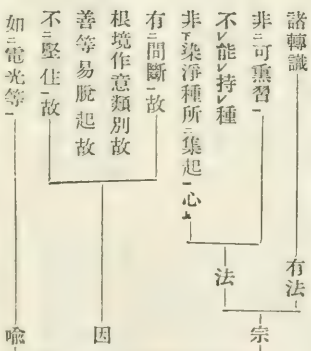 諸轉識
非㆓可熏習㆒
不㆑能持㆑種
非㆘染淨種所㆓集起㆒心㆖
有㆓間斷㆒故
根境作意類別故
善等易脫起故
不㆓堅住㆒故
如㆓電光等㆒
有法
法
宗
因
喩